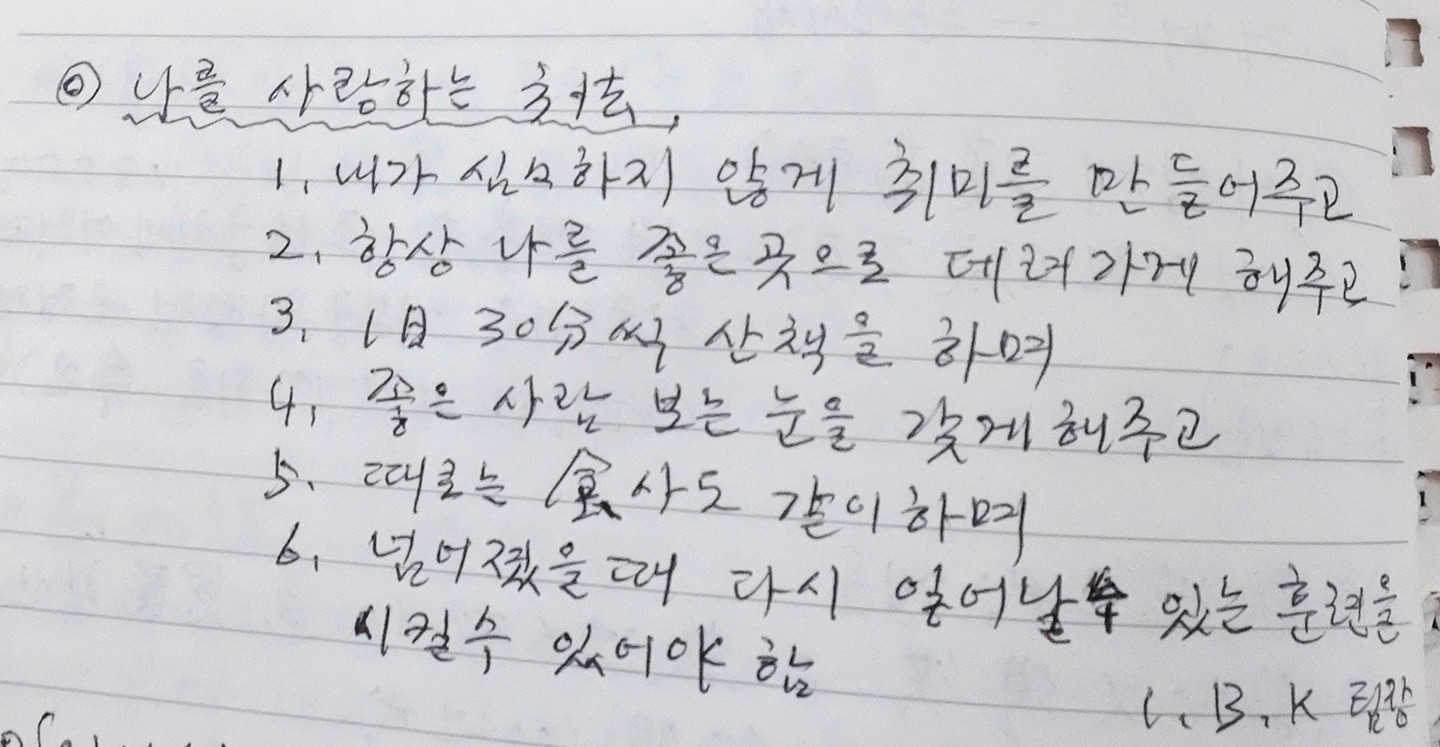 ◎ 나를 사랑하는 추서는,
1. 내가 심모하지 않게 취미를 만들어주고
2. 항상 나를 좋은곳으로 데려가게 해주고
3. 1日 30分씩 산책을 하며
4. 좋은 사람 보는 눈을 갖게해주고
5. 때로는 食사도 같이하며
6. 넘어졌을때 다시 일어날수 있는 훈련을
시킬수 있어야 함
I.B.K 팀장